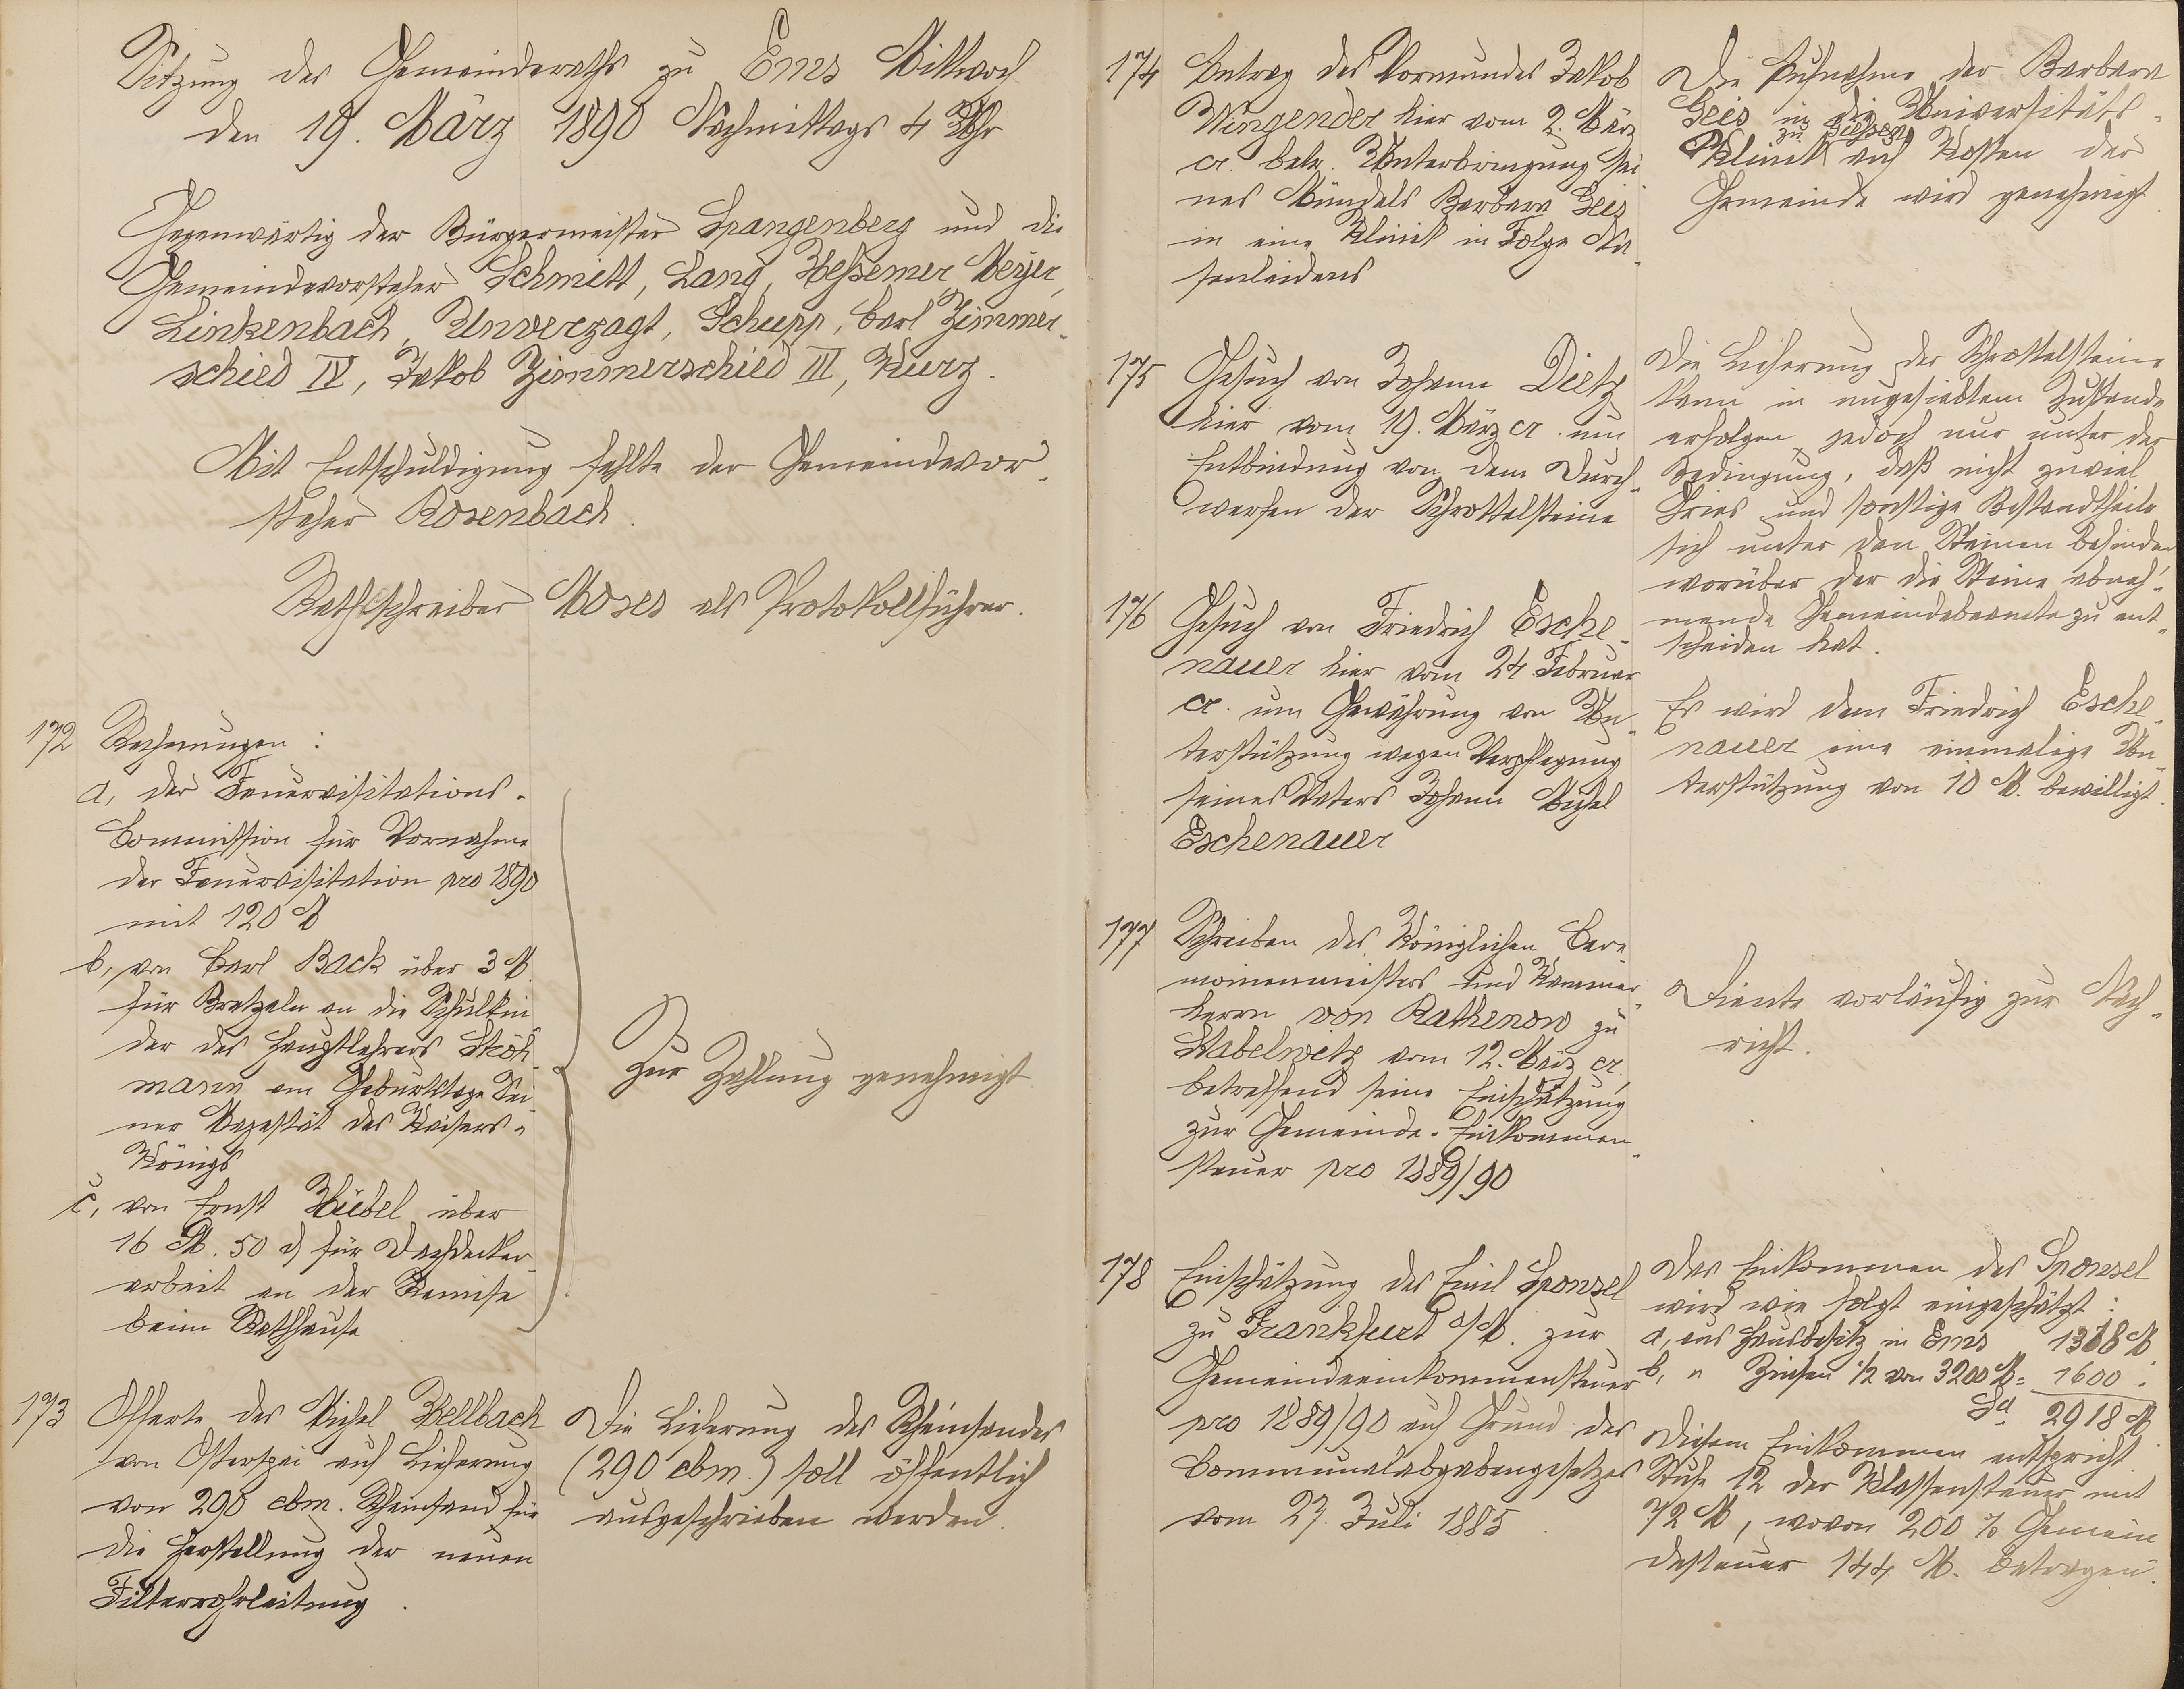 Sitzung des Gemeinderaths zu Ems Mittwoch
den 19. März 1890 Nachmittags 4 Uhr
Gegenwärtig der Bürgermeister Spangenberg und die
Gemeindevorsteher Schmitt, Lang, Heßemer, Meyer,
Linkenbach, Unverzagt, Schupp, Carl Zimmer-
schied IV, Jakob Zimmerschied III, Kurz.
Mit Entschuldigung fehlte der Gemeindevor-
steher Rosenbach.
Rathsschreiber Moses als Protokollführer.
172 Rechnungen:
a, der Feuervisitations-
Commission für Vornahme
der Feuervisitation pro 1890
mit 120 M
b, von Carl Back über 3 M.
für Bretzeln an die Schulkin
der des Hauptlehrers Ströh
mann am Geburtstage Sei-
ner Majestät des Kaisers u
Königs
c, von Ernst Hübel über
16 M. 50 d für Dachdecker-
arbeit an der Remise
beim Rathhause
Zur Zahlung genehmigt.
173 Offerte des Michel Hellbach
von Osterspei auf Lieferung
von 290 cbm. Rheinsand für
die Herstellung der neuen
Filterrohrleitung.
Die Lieferung des Rheinsandes
(290 cbm.) soll öffentlich
ausgeschrieben werden.
174 Antrag des Vormundes Jakob
Wingender hier vom 2. März
cr. betr. Unterbringung sei
nes Mündels Barbara Geis
in eine Klinik in Folge Na-
senleidens
Die Aufnahme der Barbara
Geis in die Universitäts-
Klinik zu Giessen auf Kosten der
Gemeinde wird genehmigt.
175 Gesuch von Johann Dietz
hier vom 19. März cr. um
Entbindung von dem Durch-
werfen der Schrottelsteine
Die Lieferung der Schrottelsteine
kann in ungesiebtem Zustande
erfolgen, jedoch nur unter der
Bedingung, daß nicht zuviel
Gries und sonstige Bestandtheile
sich unter den Steinen befinden
worüber der die Steine abneh-
mende Gemeindebeamte zu ent-
scheiden hat.
176 Gesuch von Friedrich Esche-
nauer hier vom 24 Februar
cr. um Gewährung von Un-
terstützung wegen Verpflegung
seines Vaters Johann Michel
Eschenauer
Es wird dem Friedrich Esche-
nauer eine einmalige Un-
terstützung von 10 M. bewilligt.
177 Schreiben des Königlichen Cere
monienmeisters und Kammer-
herrn von Rathenow zu
vom 12. März cr.
betreffend seine Einschätzung
zur Gemeinde-Einkommen-
steuer pro 1889/90
Diente vorläufig zur Nach-
richt.
178 Einschätzung des Emil Sponsel
zu Frankfurt a/M. zur
Gemeindeeinkommensteuer
pro 1889/90 auf Grund des
Communalabgabengesetzes
vom 27. Juli 1885.
Das Einkommen des Sponsel
wird wie folgt eingeschätzt:
a, aus Hausbesitz in Ems 1318 M
b, " Zinsen 1/2 von 3200 M = 1600 "
Sa 2918 M.
Diesem Einkommen entspricht
Stufe 12 der Klassensteuer mit
72 M, wovon 200 % Gemein
desteuer 144 M. betragen.